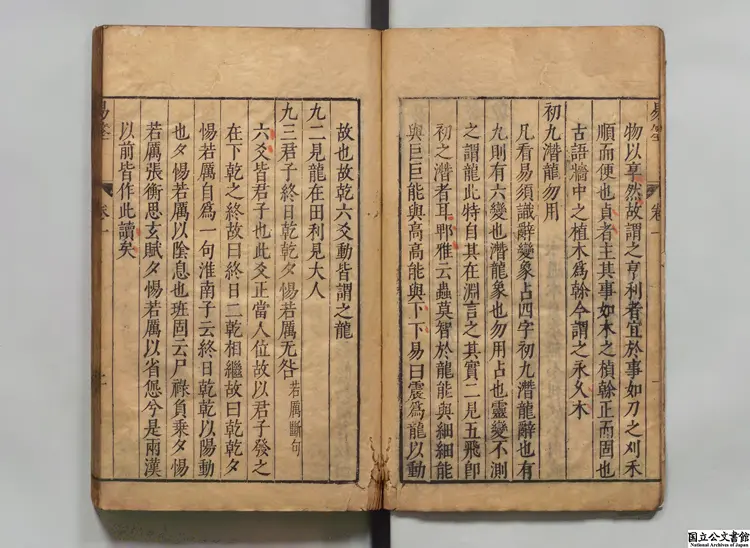 物以亨然故謂之亨利者宜於事如刀之刈禾
順而便也貞者主其事如木之楨榦正而固也
古語牆中之植木爲榦今謂之永久木
初九潛龍勿用
凡看易須識辭變象占四字初九潛龍辭也有
九則有六變也潛龍象也勿用占也靈變不測
之謂龍此特自其在淵言之其實二見五飛卽
初之潛者耳鄲雅云蟲莫智於龍龍能與細細能
與巨巨能與高高能與下下易曰震爲龍以動
故也故乾六爻動皆謂之龍
九二見龍在田利見大人
九三君子終日乾乾夕惕若厲无咎若厲斷句
六爻皆君子也此爻正當人位故以君子發之
在下乾之終故曰終日二乾相繼故曰乾乾夕
惕若厲自爲一句淮南子云終日乾乾以陽動
也夕惕若厲以陰息也班固云尸祿負乘夕惕
若厲張衡思玄賦夕惕若厲以省愆兮是兩漢
以前皆作此讀矣
易筌
卷一
国立公文書館
National Archives of Japan